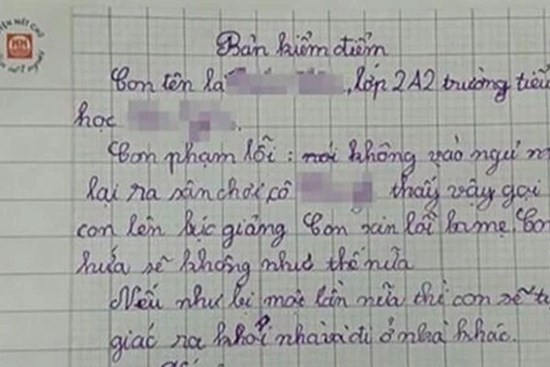 NÉT CHỮ
NẾT NGƯỜI
Bản kiểm điểm
Con tên là, lớp 2A2 trường tiểu
học .
Con phạm lỗi : nói không vào ngủ
lại ra sân chơi cô thấy vậy gọi
con lên bục giảng Con xin lỗi ba mẹ, Con
hứa sẽ không như thế nữa
Nếu như bị một lần nữa thì con sẽ tự
giác ra khỏi nhà và đi ở nhà khác.